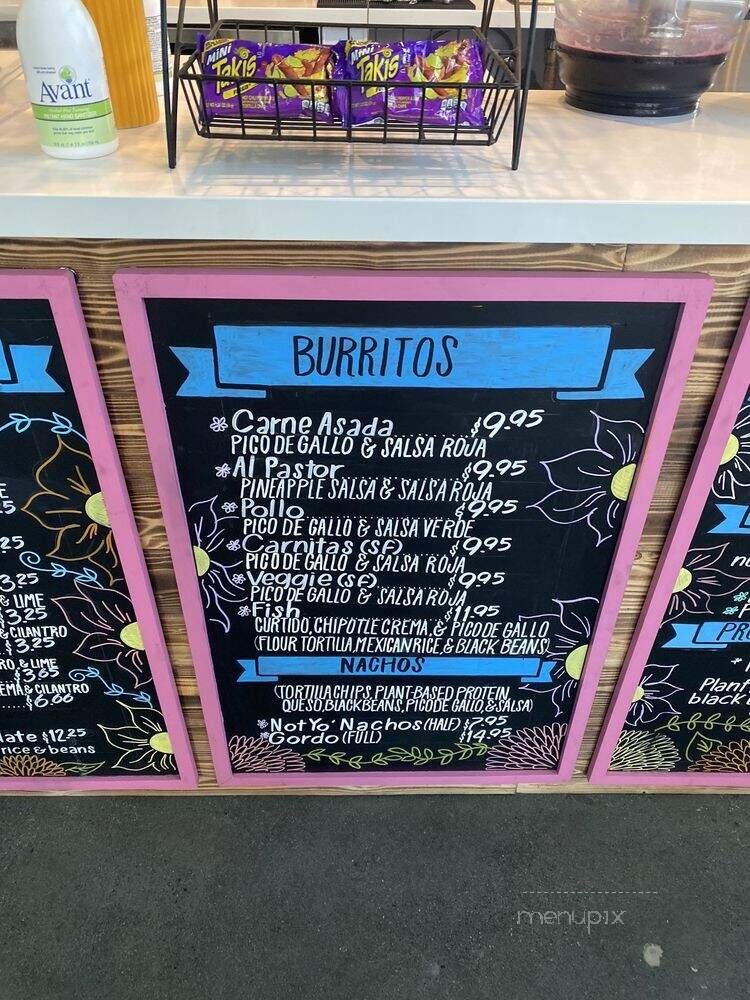 Avant
MINI Takis
MINI Takis
BURRITOS
Carne Asada........$9.95
PICO DE GALLO & SALSA ROJA
Al Pastor........$9.95
PINEAPPLE SALSA & SALSA ROJA
Pollo........$9.95
PICO DE GALLO & SALSA VERDE
Carnitas (SF)........$9.95
PICO DE GALLO & SALSA ROJA
Veggie (SF)........$9.95
PICO DE GALLO & SALSA ROJA
Fish........$11.95
CURTIDO, CHIPOTLE CREMA, & PICO DE GALLO
(FLOUR TORTILLA, MEXICAN RICE, & BLACK BEANS)
NACHOS
(TORTILLA CHIPS, PLANT-BASED PROTEIN,
QUESO, BLACK BEANS, PICO DE GALLO, & SALSA)
Not Yo' Nachos (HALF) $7.95
Gordo (FULL) $14.95
3.25
& LIME
$3.25
& CILANTRO
$3.25
& LIME
$3.65
& CILANTRO
$6.66
$12.25
rice & beans
Plant
black
menupix